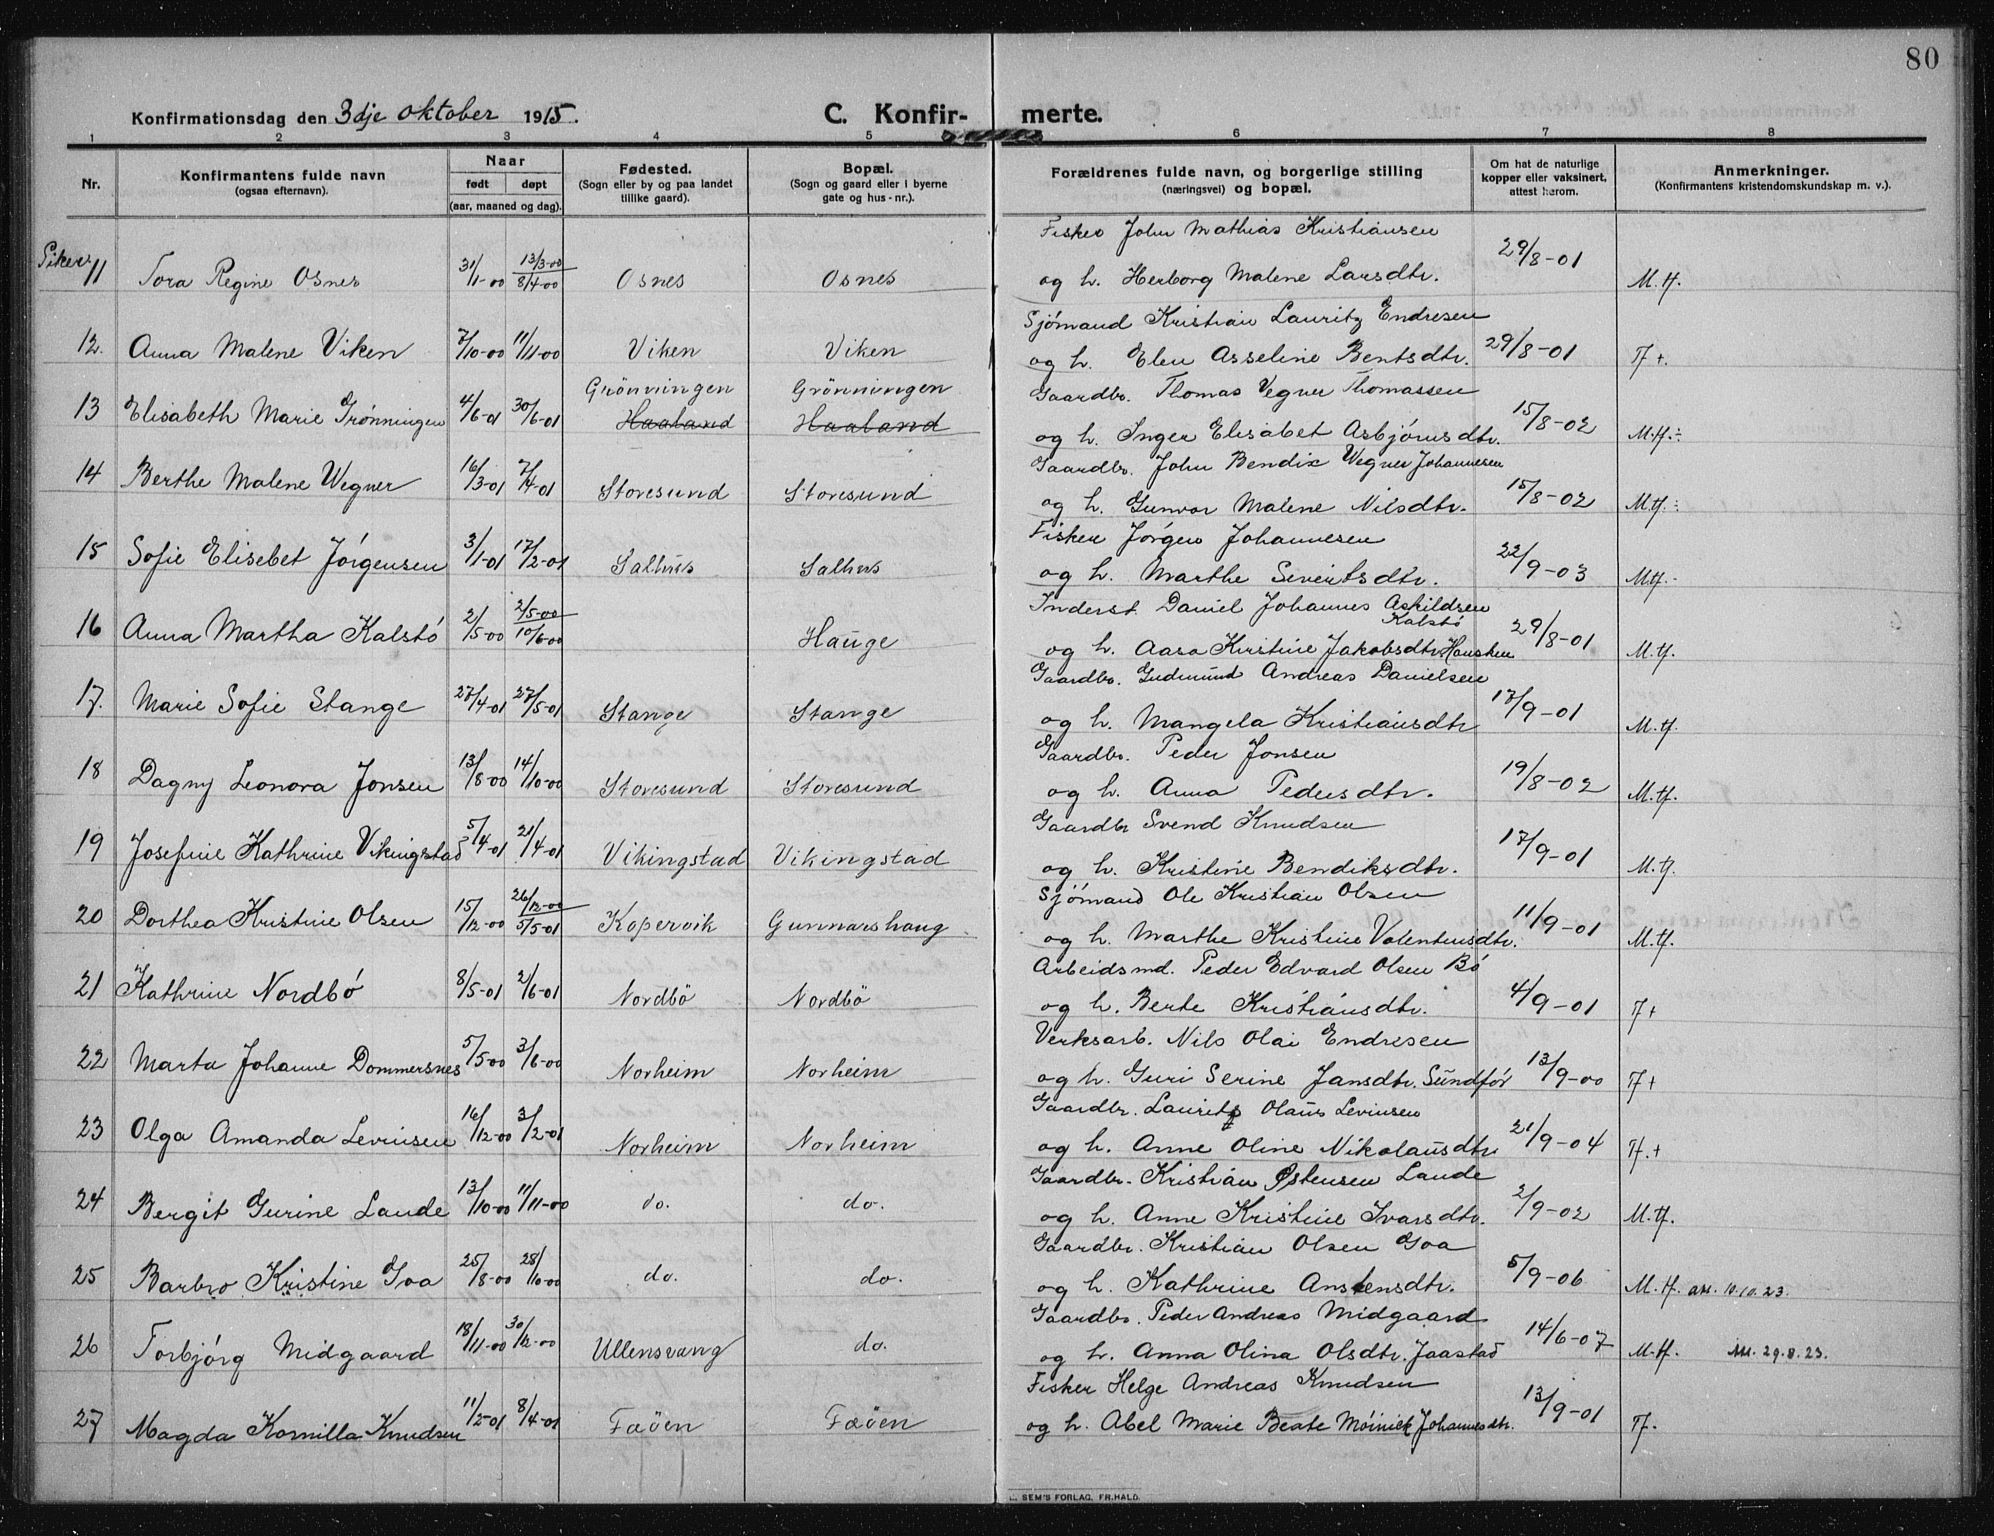 80
Konfirmationsdag den 3dje oktober 1915. C. Konfir- merte.
1 2 3 4 5 6 7 8
Nr. Konfirmantens fulde navn (ogsaa efternavn). Naar født døpt (aar, maaned og dag). Fødested. (Sogn eller by og paa landet tillike gaard). Bopæl. (Sogn og gaard eller i byerne gate og hus-nr.). Forældrenes fulde navn, og borgerlige stilling (næringsvei) og bopæl. Om hat de naturlige kopper eller vaksinert, attest herom. Anmerkninger. (Konfirmantens kristendomskundskap m. v.).
Fisker John Mathias Kristiansen
Piker 11 Tora Regine Osnes 31/1-00 13/3-00 8/4-00 Osnes Osnes og h. Herborg Malene Larsdtr. 29/8-01 M.tf.
Sjömand Kristian Lauritz Endresen
12. Anna Malene Viken 7/10-00 11/11-00 Viken Viken og h. Elen Asseline Bentsdtr. 29/8-01 Tf +.
Grönningen Grönningen Gaardbr. Thomas Vegner Thomassen
13 Elisabeth Marie Grønningen 4/6-01 30/6-01 Haaland Haaland og h. Inger Elisabet Asbjörnsdtr. 15/8-02 M.tf.÷
Gaardbr. John Bendix Vegner Johannesen
14 Berthe Malene Wegner 16/3-01 7/4-01 Storesund Storesund og h. Gunvor Malene Nilsdtr. 15/8-02 M.tf.÷
Fisker Jörgen Johannesen
15 Sofie Elisebet Jörgensen 3/1-01 17/2-01 Salhus Salhus og h. Marthe Sivertsdtr. 22/9-03 Mtf.-
Inderst Daniel Johannes Askildsen Kalstö
16 Anna Martha Kalstö 2/5-00 2/5-00 10/6-00 Hauge og h. Aasa Kristine Jakobsdtr. Hausken 29/8-01 M.tf.
Gaardbr. Gudmund Andreas Danielsen
17. Marie Sofie Stange 27/4-01 27/5-01 Stange Stange og h. Mangela Kristiansdtr 17/9-01 M.tf.
Gaardbr. Peder Jonsen
18 Dagny Leonora Jonsen 13/8-00 14/10-00 Storesund Storesund og h. Anna Pedersdtr. 19/8-02 M.tf.
Gaardbr Svend Knudsen
19 Josefine Kathrine Vikingstad 5/4-01 21/4-01 Vikingstad Vikingstad og h. Kristine Bendiksdtr. 17/9-01 M.tf.
Sjömand Ole Kristian Olsen
20 Dorthea Kristine Olsen 15/12-00 26/12-00 5/5-01 Kopervik Gunnarshaug og h. Marthe Kristine Valentinsdtr. 11/9-01 M.tf.
Arbeidsmd. Peder Edvard Olsen Bö
21 Kathrine Nordbö 8/5-01 2/6-01 Nordbö Nordbö og h. Berte Kristiansdtr. 4/9-01 Tf +
Verksarb. Nils Olai Endresen
22 Marta Johanne Dommersnes 5/5-00 3/6-00 Norheim Norheim og h. Guri Serine Jansdtr. Sundför 13/9-00 Tf +
Gaardbr. Lauritz Olaus Levinsen
23 Olga Amanda Levinsen 16/12-00 3/2-01 Norheim Norheim og h. Anne Oline Nikolausdtr 21/9-04 Tf.+
Gaardbr. Kristian Østensen Lande
24 Bergit Gurine Lande 13/10-00 11/11-00 do. do. og h. Anne Kristine Ivarsdtr. 2/9-02 M.tf.
Gaardbr. Kristian Olsen Goa
25 Barbro Kristine Goa 25/8-00 28/10-00 do. do. og h. Kathrine Anstensdtr. 5/9-06 M.tf. 10.10.23.
Gaardbr. Peder Andreas Midgaard
26 Torbjörg Midgaard 18/11-00 30/12-00 Ullensvang do. og h. Anna Olina Olsdtr. Jaastad 14/6-07 M.tf. 29.8.23.
Fisker Helge Andreas Knudsen
27 Magda Kornilla Knudsen 11/2-01 8/4-01 Fæöen Fæöen og h. Abel Marie Beate Möinick Johannesdtr. 13/9-01 Tf.
SEM'S FORLAG, FR.HALD.